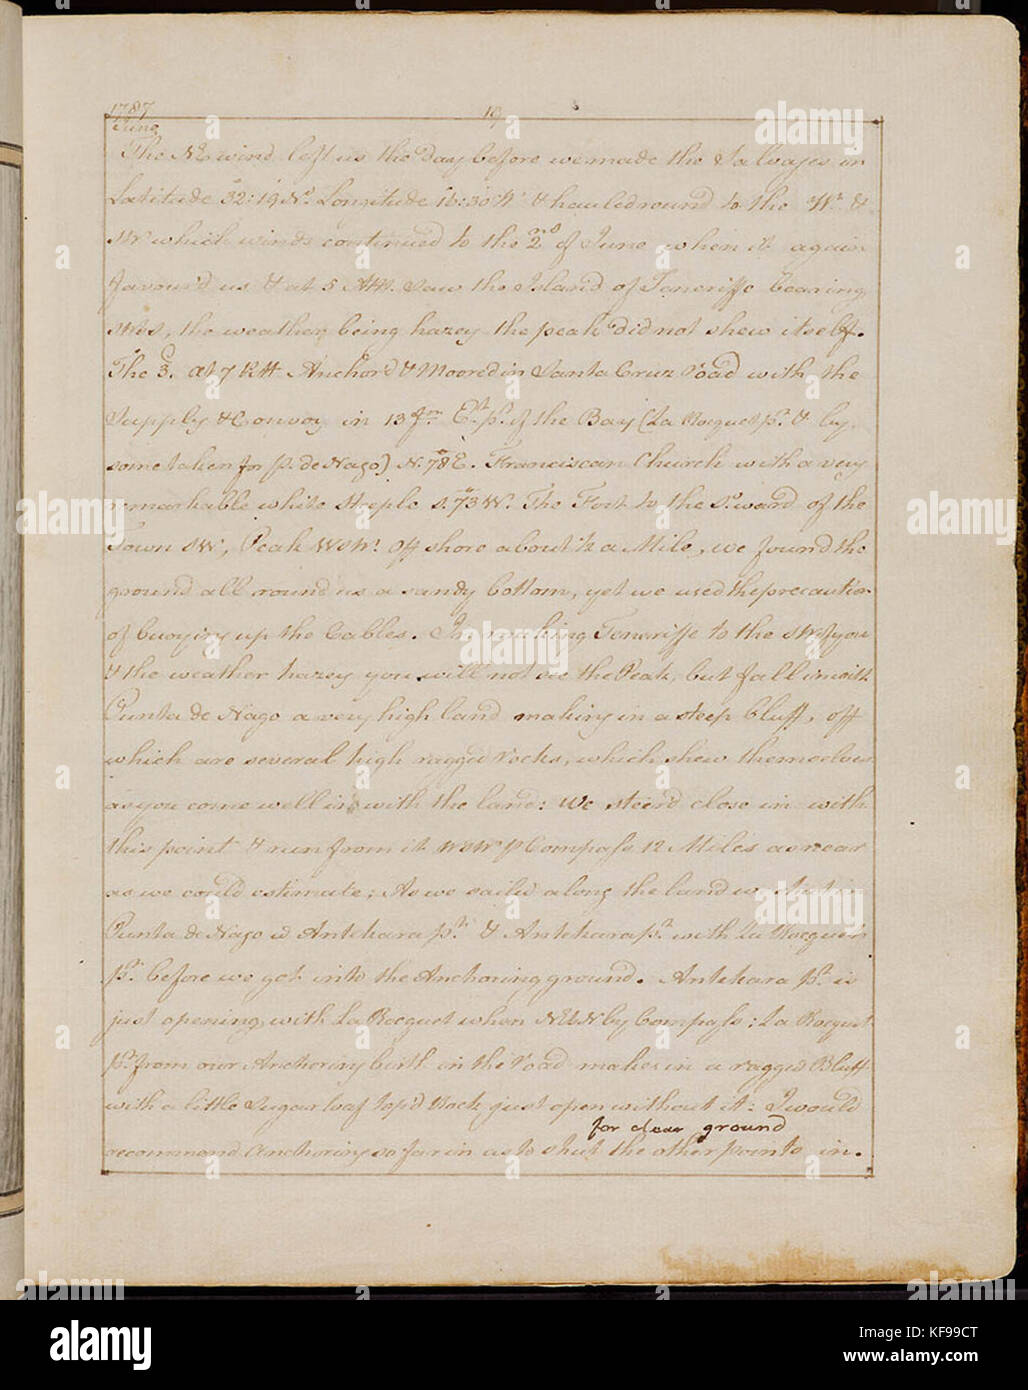 1787
19
June
The NE wind left us the day before we made the Salvages in
Latitude 32°:19 No. Longitude 16:30 W & hauled round to the Wt. &
SW which winds continued to the 2nd of June when it again
favour'd us & at 5 AM. Saw the Island of Teneriffe bearing
the weather being hazey the peak did not shew itself.
The 3d. at 7 PM Anchord & Moored in Santa Cruz road with the
Supply & Convoy in 13 fm. Et. pt. of the Bay (La Rocquet pt. & by
some taken for p. de Nago) N. 78° E. Franciscan Church with a very
remarkable white Steeple S. 73° W. The Fort to the So. ward of the
Town SW, Peak WSW. off shore about ½ a Mile, we found the
ground all round us a sandy bottom, yet we used the precaution
of buoying up the Cables. In making Teneriffe to the you
& the weather hazey you will not see the Peak, but fall in with
Punta de Nago a very high land making in a steep bluff, off
which are several high ragged rocks, which shew themselves
as you come well in with the land: We steer'd close in with
this point & run from it WSW p Compass 12 Miles as near
as we could estimate; As we sailed along the land we
Punta de Nago Antekara pt. & Antekara pt. with La Rocquet
pt. before we got into the Anchoring ground. Antekara pt. is
just opening with La Rocquet when by Compass; La Rocquet
pt. from our Anchoring birth in the road makes in a ragged Bluff
with a little Sugar loaf top'd Rock just open without it: I would
for clear ground
recommend Anchoring so far in as to shut the other points in.
alamy
alamy
alamy
alamy
alamy
alamy
alamy
a
a
a
a
alamy
Image ID: KF99CT
www.alamy.com